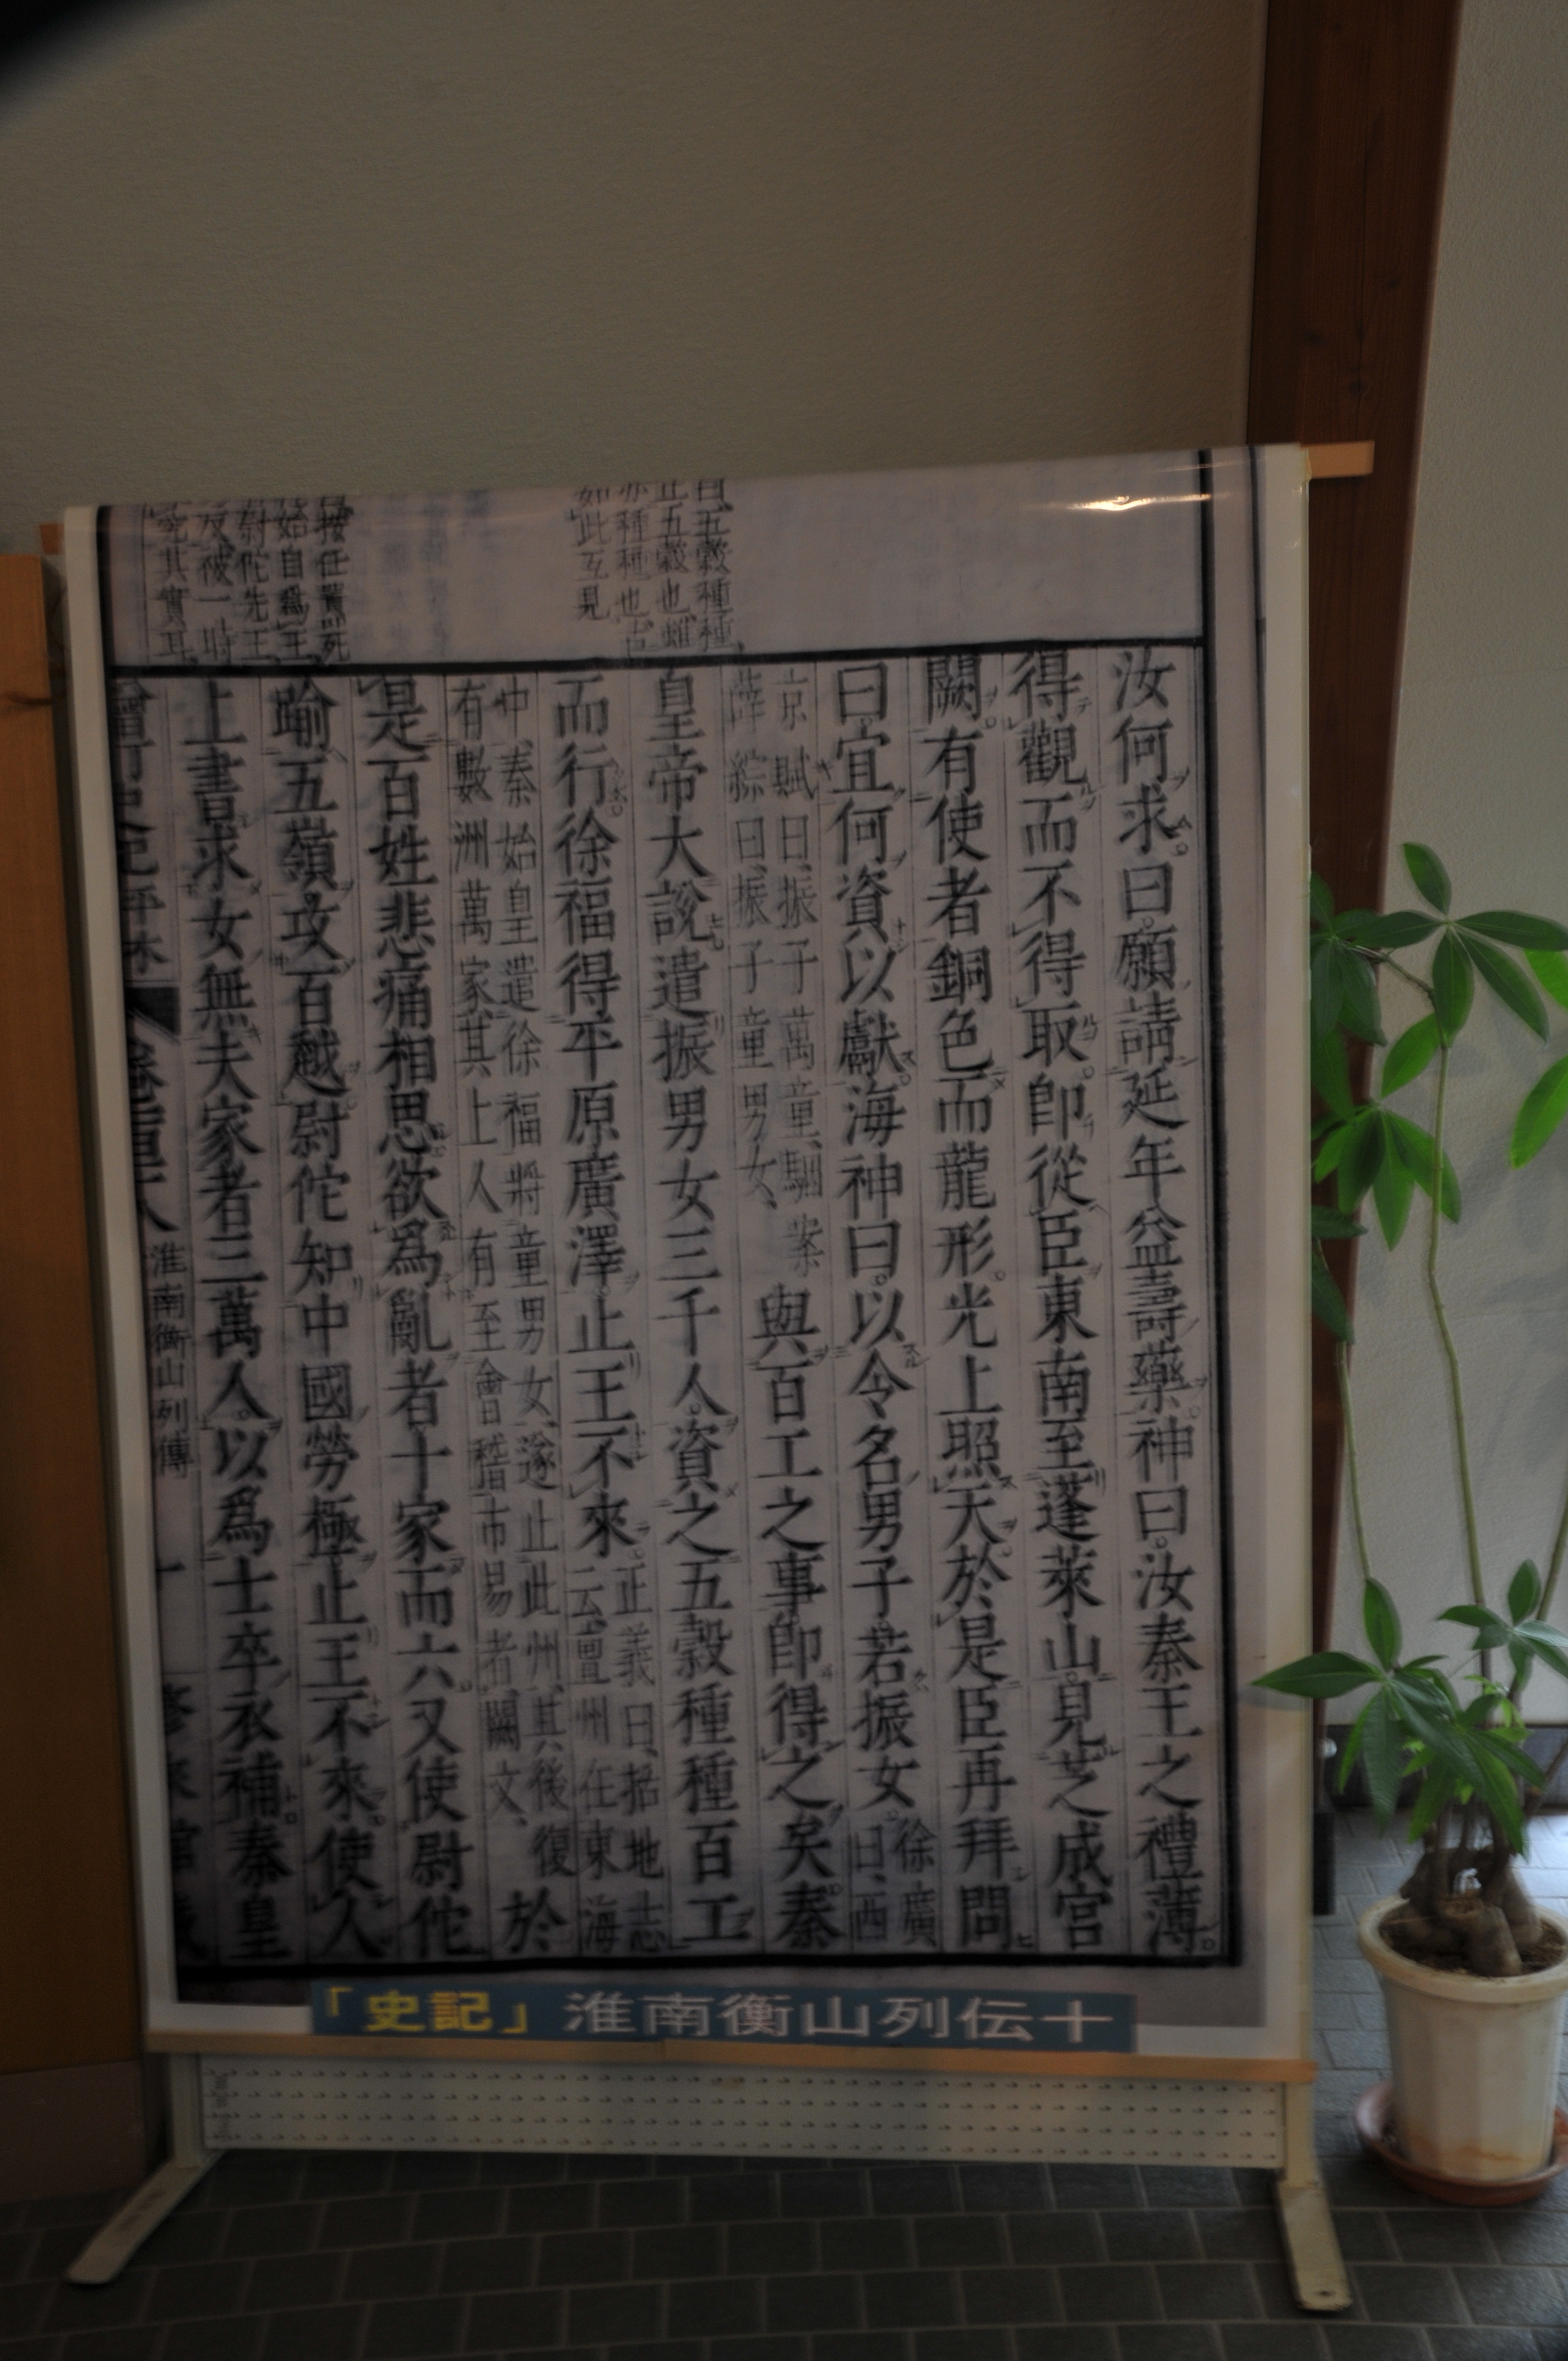 汝何求曰願請延年益壽藥神曰汝秦王之禮薄
得觀而不得取即從臣東南至蓬萊山見芝成宮
闕有使者銅色而龍形光上照天於是臣再拜問
曰宜何資以獻海神曰以令名男子若振女
徐廣
曰西
京賦曰振子萬童駰案
薛綜曰振子童男女
與百工之事即得之矣秦
皇帝大說遣振男女三千人資之五穀種種百工
而行徐福得平原廣澤止王不來
正義曰括地志
云亶州在東海
中秦始皇遣徐福將童男女遂止此州其後復
有數洲萬家其上人有至會稽市易者闕文
於
是百姓悲痛相思欲爲亂者十家而六又使尉佗
踰五嶺攻百越尉佗知中國勞極止王不來使人
上書求女無夫家者三萬人以爲士卒衣補秦皇
淮南衡山列傳
十
曰五穀種種
五穀也雖
亦種種也古
如此互見
按任囂死
始自爲王
尉佗先王
反彼一時
其實耳
「史記」淮南衡山列伝十